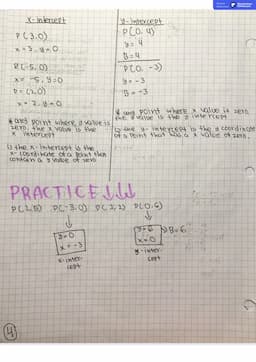 X-intercept
P(3,0)
x=3, y=0
P(-5,0)
x=-5, y=0
P=(2,0)
x=2, y=0
* any point where y value is
zero, the x value is the
x intercept
the x-intercept is the
x-coordinate of a point that
contain a y value of zero
y-intercept
P(0, 4)
y=4
B=4
P(0, -3)
y=-3
B=-3
* any point where x value is zero
the y value is the y intercept
the y-intercept is the y coordinate
of a point that has a x value of zero.
PRACTICE↓↓↓
P(-3,0) P(2,2) P(0,6)
y=0
x=-3
x-inter-
cept
y=6 → B=6
x=0
y-inter-
cept
4